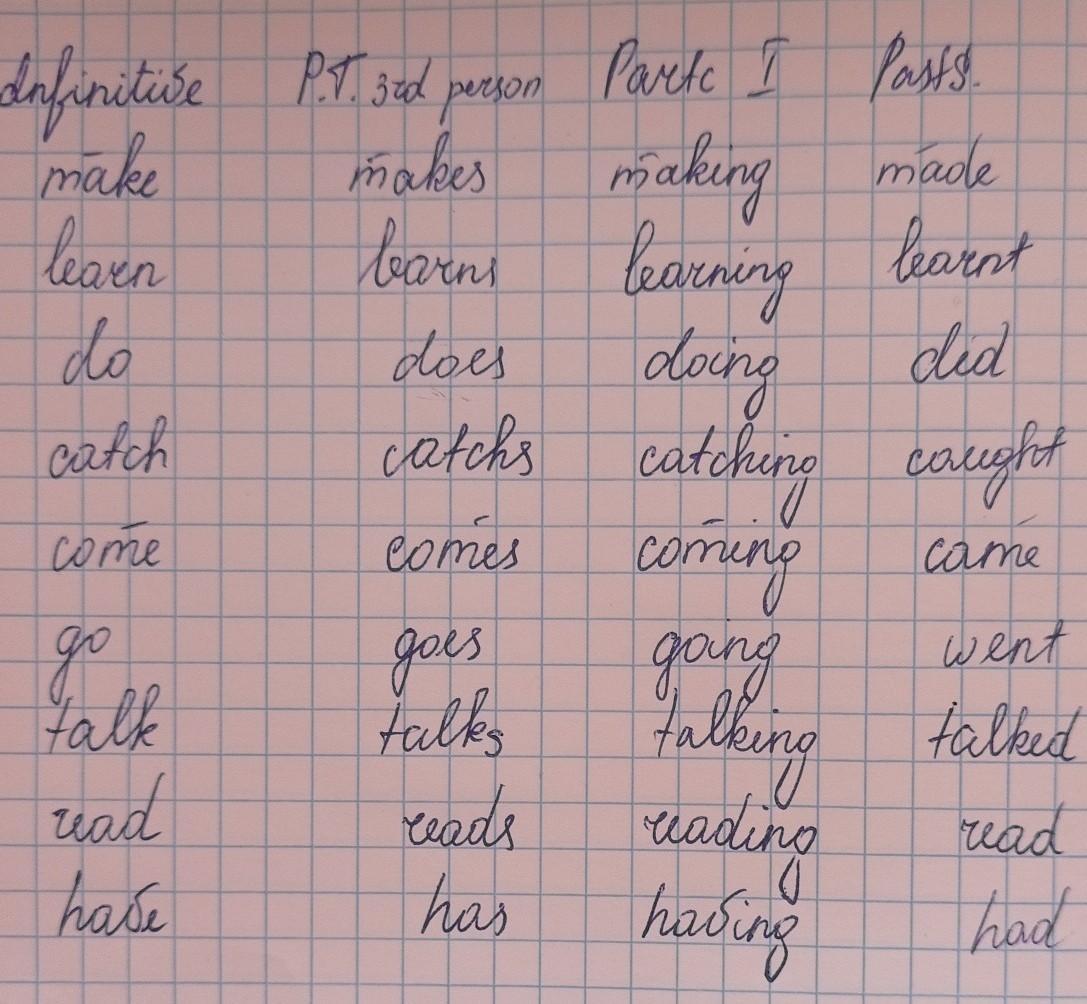 Infinitive P.T. 3rd person Partc I PastS.
make makes making made
learn learns learning learnt
do does doing did
catch catchs catching caught
come comes coming came
go goes going went
talk talks talking talked
read reads reading read
have has having had